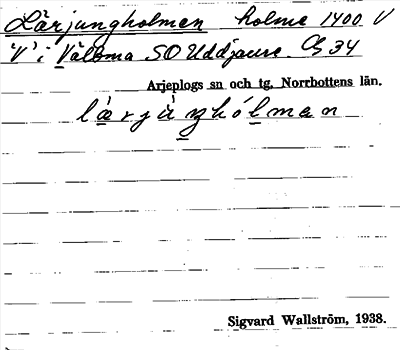 Lärjungholmen holme 1400 V
"V" i Välbma SO Uddjaure. Cg 34
Arjeplogs sn och tg, Norrbottens län.
lärjùŋhólman
Sigvard Wallström, 1938.